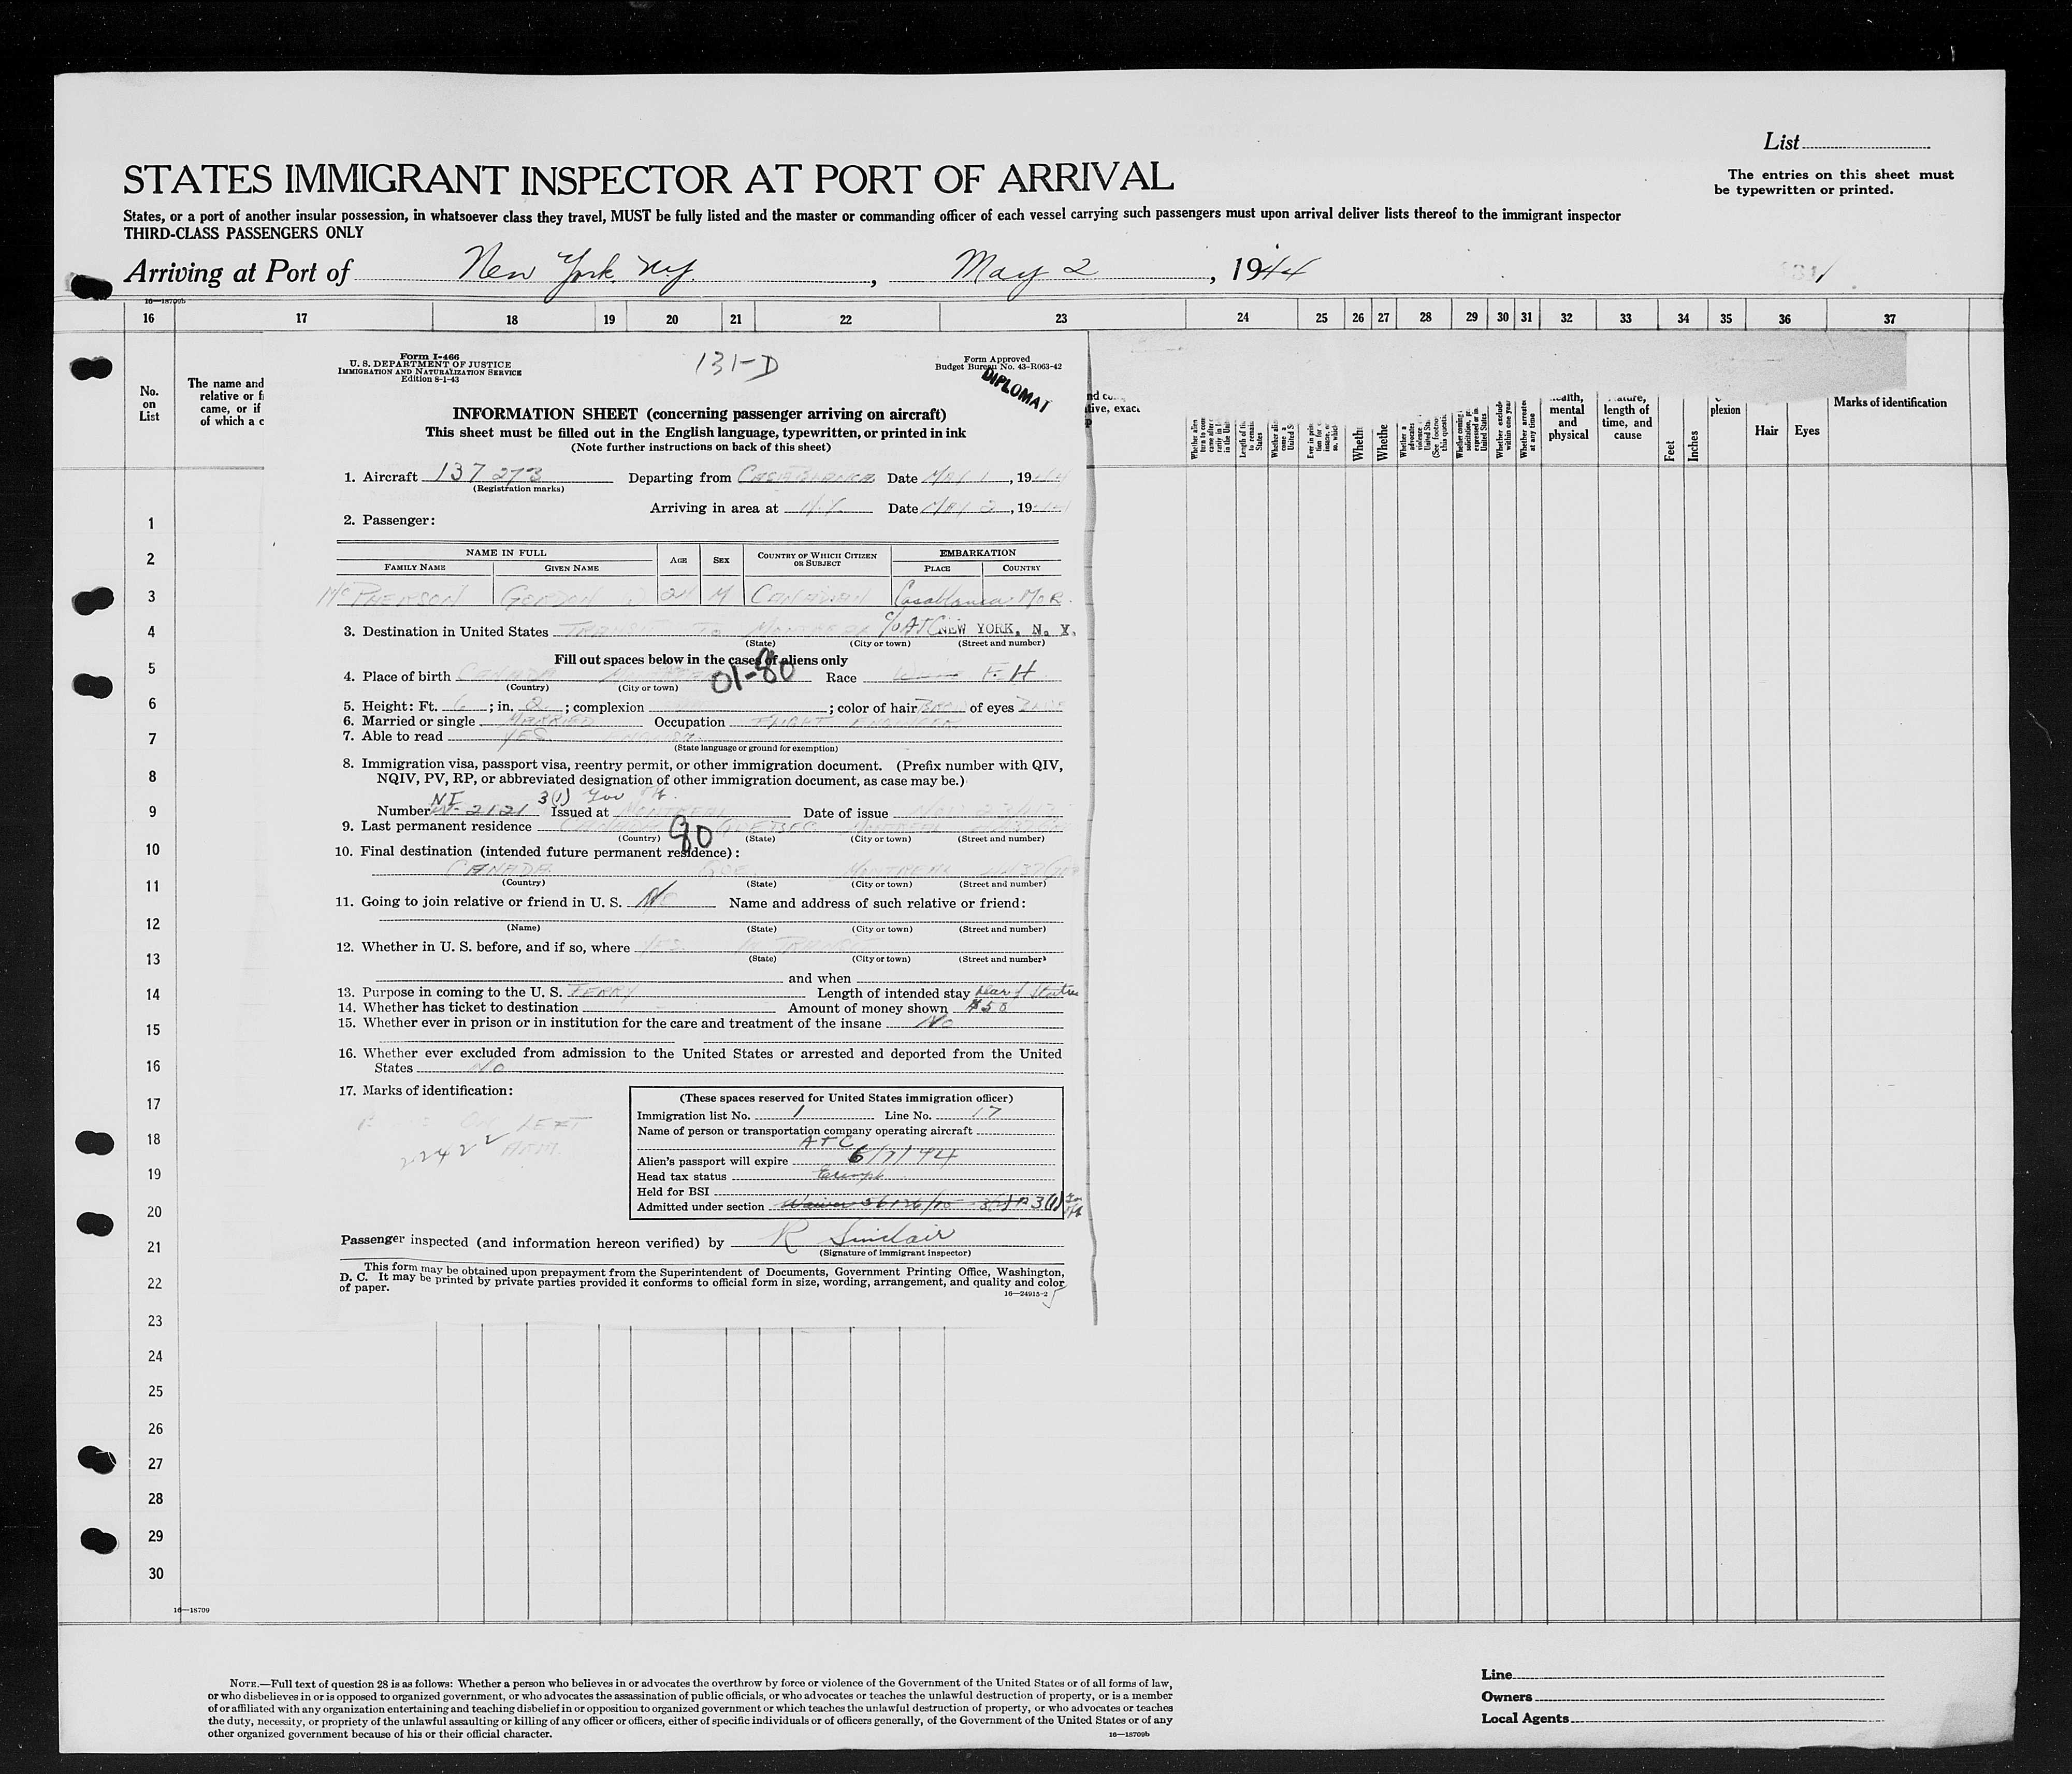 List
The entries on this sheet must
be typewritten or printed.
STATES IMMIGRANT INSPECTOR AT PORT OF ARRIVAL
States, or a port of another insular possession, in whatsoever class they travel, MUST be fully listed and the master or commanding officer of each vessel carrying such passengers must upon arrival deliver lists thereof to the immigrant inspector
THIRD-CLASS PASSENGERS ONLY
Arriving at Port of New York. N.Y. , May 2 , 1944
16—18709b
16 17 18 19 20 21 22 23 24 25 26 27 28 29 30 31 32 33 34 35 36 37
No.
on
List
The name and
relative or f
came, or if
of which a c
mental
and
physical
length of
time, and
cause
Feet
Inches
plexion
Hair
Eyes
Marks of identification
Form I-466
U. S. DEPARTMENT OF JUSTICE
IMMIGRATION AND NATURALIZATION SERVICE
Edition 8-1-43
131-D
Form Approved
Budget Bureau No. 43-R063-42
DIPLOMAT
INFORMATION SHEET (concerning passenger arriving on aircraft)
This sheet must be filled out in the English language, typewritten, or printed in ink
(Note further instructions on back of this sheet)
1. Aircraft 137273 Departing from CASABLANCA Date MAY 1, 1944
(Registration marks)
Arriving in area at N.Y. Date MAY 2, 1944
2. Passenger:
NAME IN FULL
AGE SEX COUNTRY OF WHICH CITIZEN OR SUBJECT EMBARKATION
FAMILY NAME GIVEN NAME PLACE COUNTRY
McPHERSON GORDON W 24 M CANADIAN Casablanca MOR.
3. Destination in United States TRANSIT TO MONTREAL c/o ATC NEW YORK, N. Y.
(State) (City or town) (Street and number)
Fill out spaces below in the cases of aliens only
4. Place of birth CANADA 01-80 Race F.H
(Country) (City or town)
5. Height: Ft. 6 ; in. 2 ; complexion ; color of hair of eyes
6. Married or single MARRIED Occupation FLIGHT ENGINEER
7. Able to read YES ENGLISH
(State language or ground for exemption)
8. Immigration visa, passport visa, reentry permit, or other immigration document. (Prefix number with QIV,
NQIV, PV, RP, or abbreviated designation of other immigration document, as case may be.)
NI 3(1) Gov Off.
Number 2121 Issued at MONTREAL Date of issue
9. Last permanent residence CANADA QUEBEC MONTREAL
(Country) 90 (State) (City or town) (Street and number)
10. Final destination (intended future permanent residence):
CANADA QUE MONTREAL
(Country) (State) (City or town) (Street and number)
11. Going to join relative or friend in U. S. No Name and address of such relative or friend:
(Name) (State) (City or town) (Street and number)
12. Whether in U. S. before, and if so, where YES IN TRANSIT
(State) (City or town) (Street and number)
and when
13. Purpose in coming to the U. S. FERRY Length of intended stay
14. Whether has ticket to destination Amount of money shown $50
15. Whether ever in prison or in institution for the care and treatment of the insane No
16. Whether ever excluded from admission to the United States or arrested and deported from the United
States No
17. Marks of identification:
ON LEFT
ARM
22422
(These spaces reserved for United States immigration officer)
Immigration list No. 1 Line No. 17
Name of person or transportation company operating aircraft
ATC
Alien's passport will expire 6/7/44
Head tax status Exempt
Held for BSI
Admitted under section 3(1)
Passenger inspected (and information hereon verified) by R Sinclair
(Signature of immigrant inspector)
This form may be obtained upon prepayment from the Superintendent of Documents, Government Printing Office, Washington,
D. C. It may be printed by private parties provided it conforms to official form in size, wording, arrangement, and quality and color
of paper.
16—24915-2
1
2
3
4
5
6
7
8
9
10
11
12
13
14
15
16
17
18
19
20
21
22
23
24
25
26
27
28
29
30
16—18709
NOTE.—Full text of question 28 is as follows: Whether a person who believes in or advocates the overthrow by force or violence of the Government of the United States or of all forms of law,
or who disbelieves in or is opposed to organized government, or who advocates the assassination of public officials, or who advocates or teaches the unlawful destruction of property, or is a member
of or affiliated with any organization entertaining and teaching disbelief in or opposition to organized government or which teaches the unlawful destruction of property, or who advocates or teaches
the duty, necessity, or propriety of the unlawful assaulting or killing of any officer or officers, either of specific individuals or of officers generally, of the Government of the United States or of any
other organized government because of his or their official character.
16—18709b
Line
Owners
Local Agents